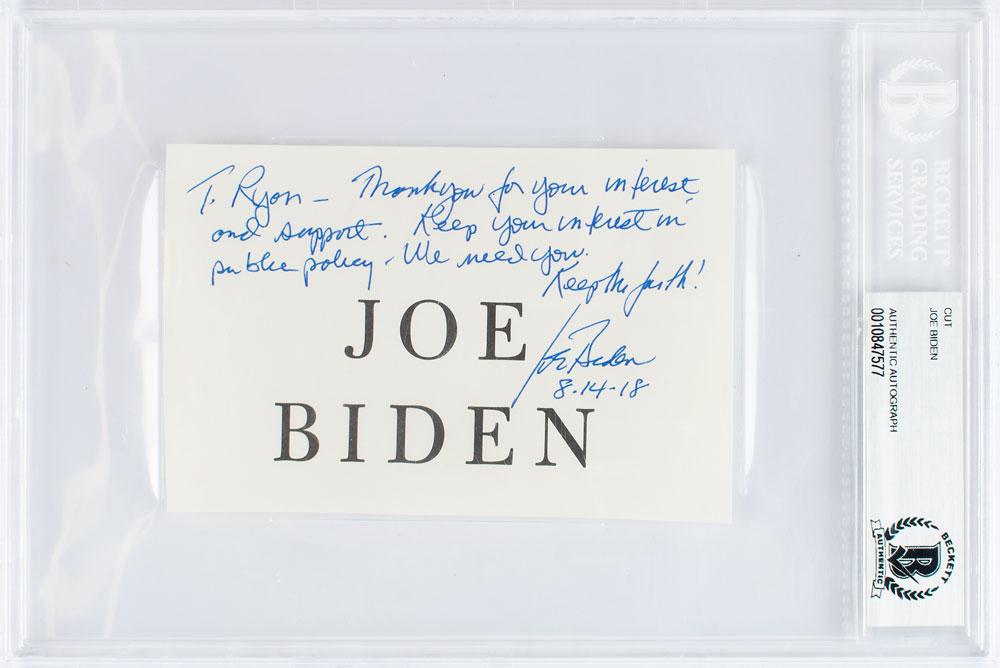 To Ryan – Thank you for your interest
and support. Keep your interest in
public policy. We need you.
Keep the faith!
JOE
Joe Biden
8-14-18
BIDEN
BECKETT
GRADING
SERVICES
CUT
JOE BIDEN
AUTHENTIC AUTOGRAPH
0010847577
BECKETT
B
AUTHENTIC